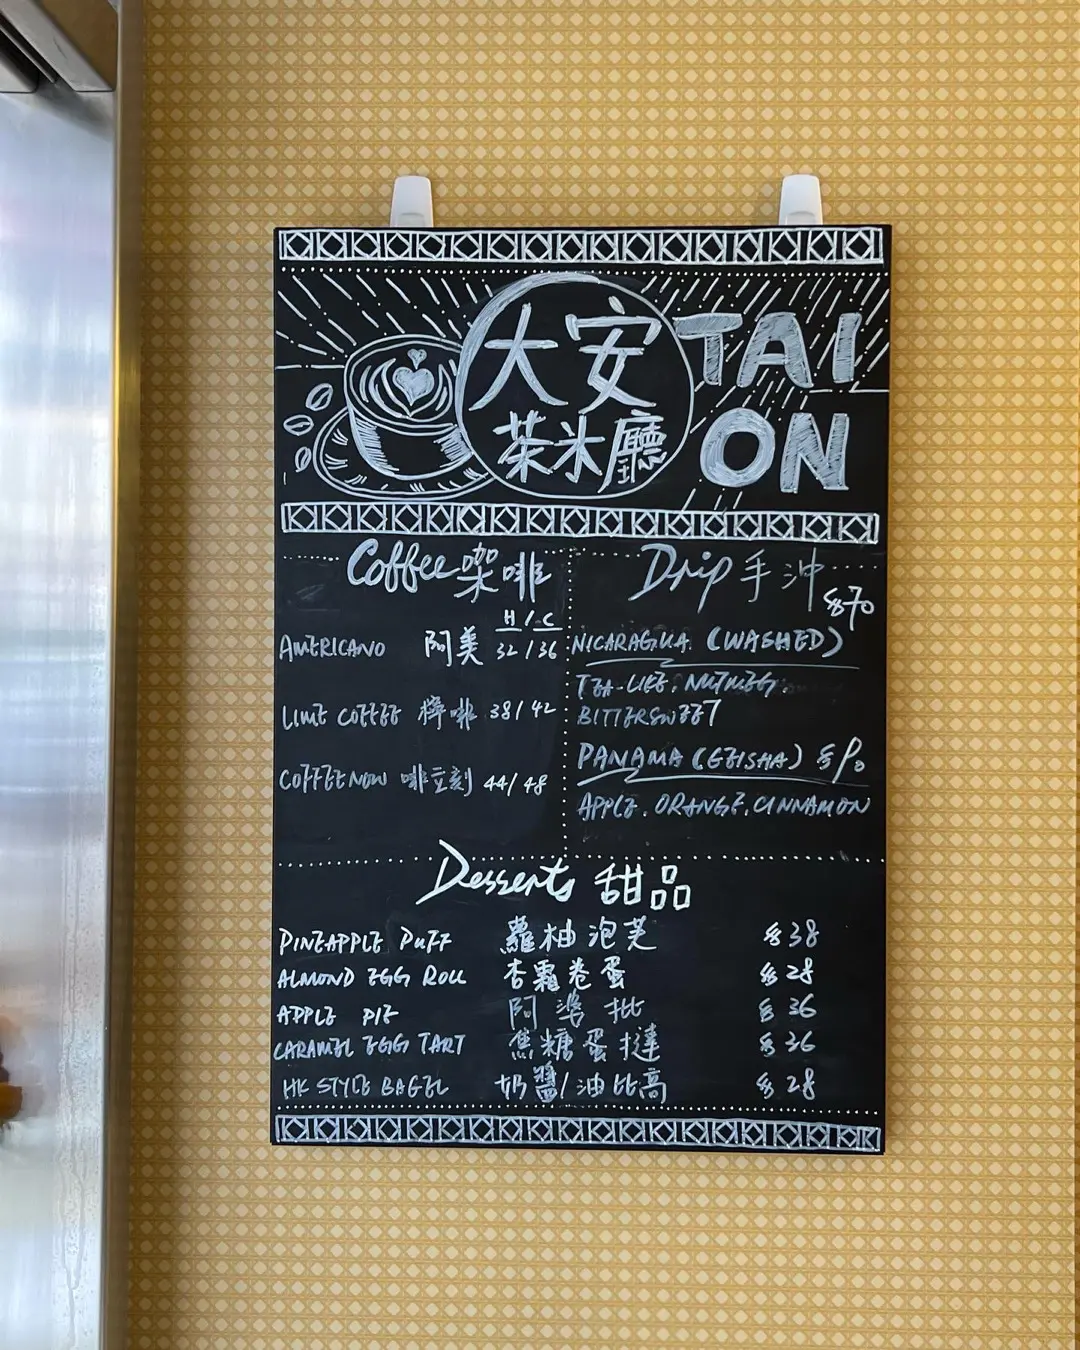 大安
茶米廳
TAI
ON
Coffee 咖啡
H / C
AMERICANO 阿美 32 / 36
LIME COFFEE 檸啡 38 / 42
COFFEE NOW 啡立刻 44 / 48
Drip 手沖
$70
NICARAGUA (WASHED)
TEA-LIKE, NUTMEG,
BITTERSWEET
PANAMA (GEISHA) $90
APPLE, ORANGE, CINNAMON
Desserts 甜品
PINEAPPLE PUFF 蘿柚泡芙 $38
ALMOND EGG ROLL 杏霜卷蛋 $28
APPLE PIE 阿婆批 $36
CARAMEL EGG TART 焦糖蛋撻 $36
HK STYLE BAGEL 奶醬/油比高 $28